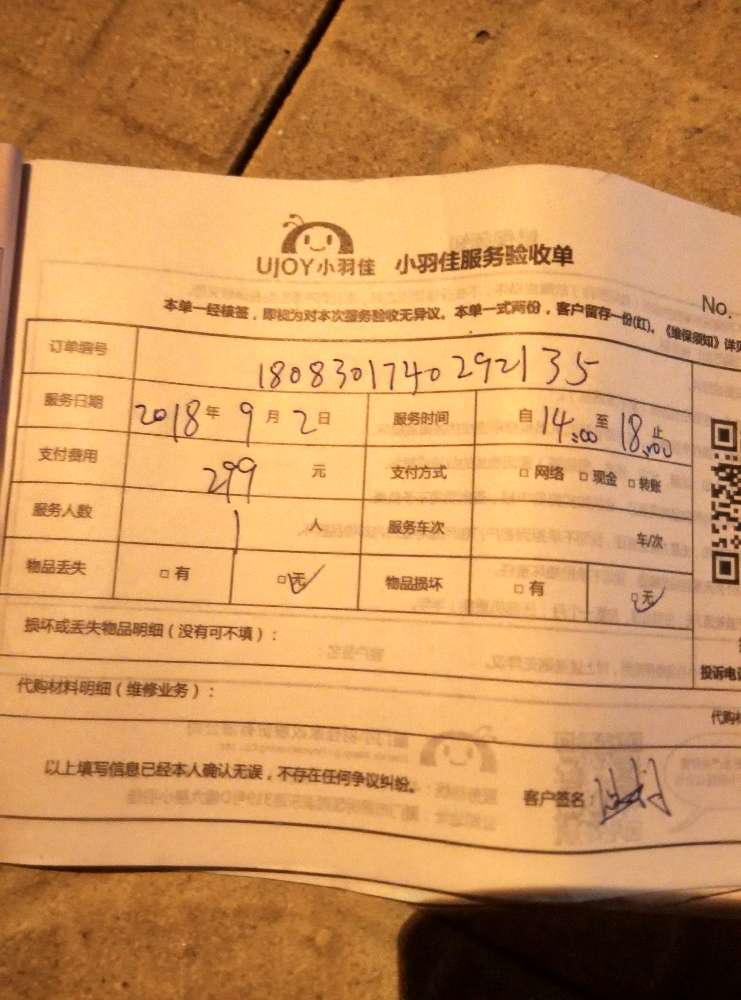 UJOY小羽佳 小羽佳服务验收单
No.
本单一经核签，即视为对本次服务验收无异议。本单一式两份，客户留存一份(红)。《维保须知》详见
订单编号 18083017402921 35
服务日期 2018年 9月 2日 服务时间 自14:00至18:00止
支付费用 299 元 支付方式 □网络 □现金 □转账
服务人数 1 人 服务车次 车/次
物品丢失 □有 □无 物品损坏 □有 □无
损坏或丢失物品明细（没有可不填）：
投诉电
代购材料明细（维修业务）：
代购
以上填写信息已经本人确认无误，不存在任何争议纠纷。
客户签名：